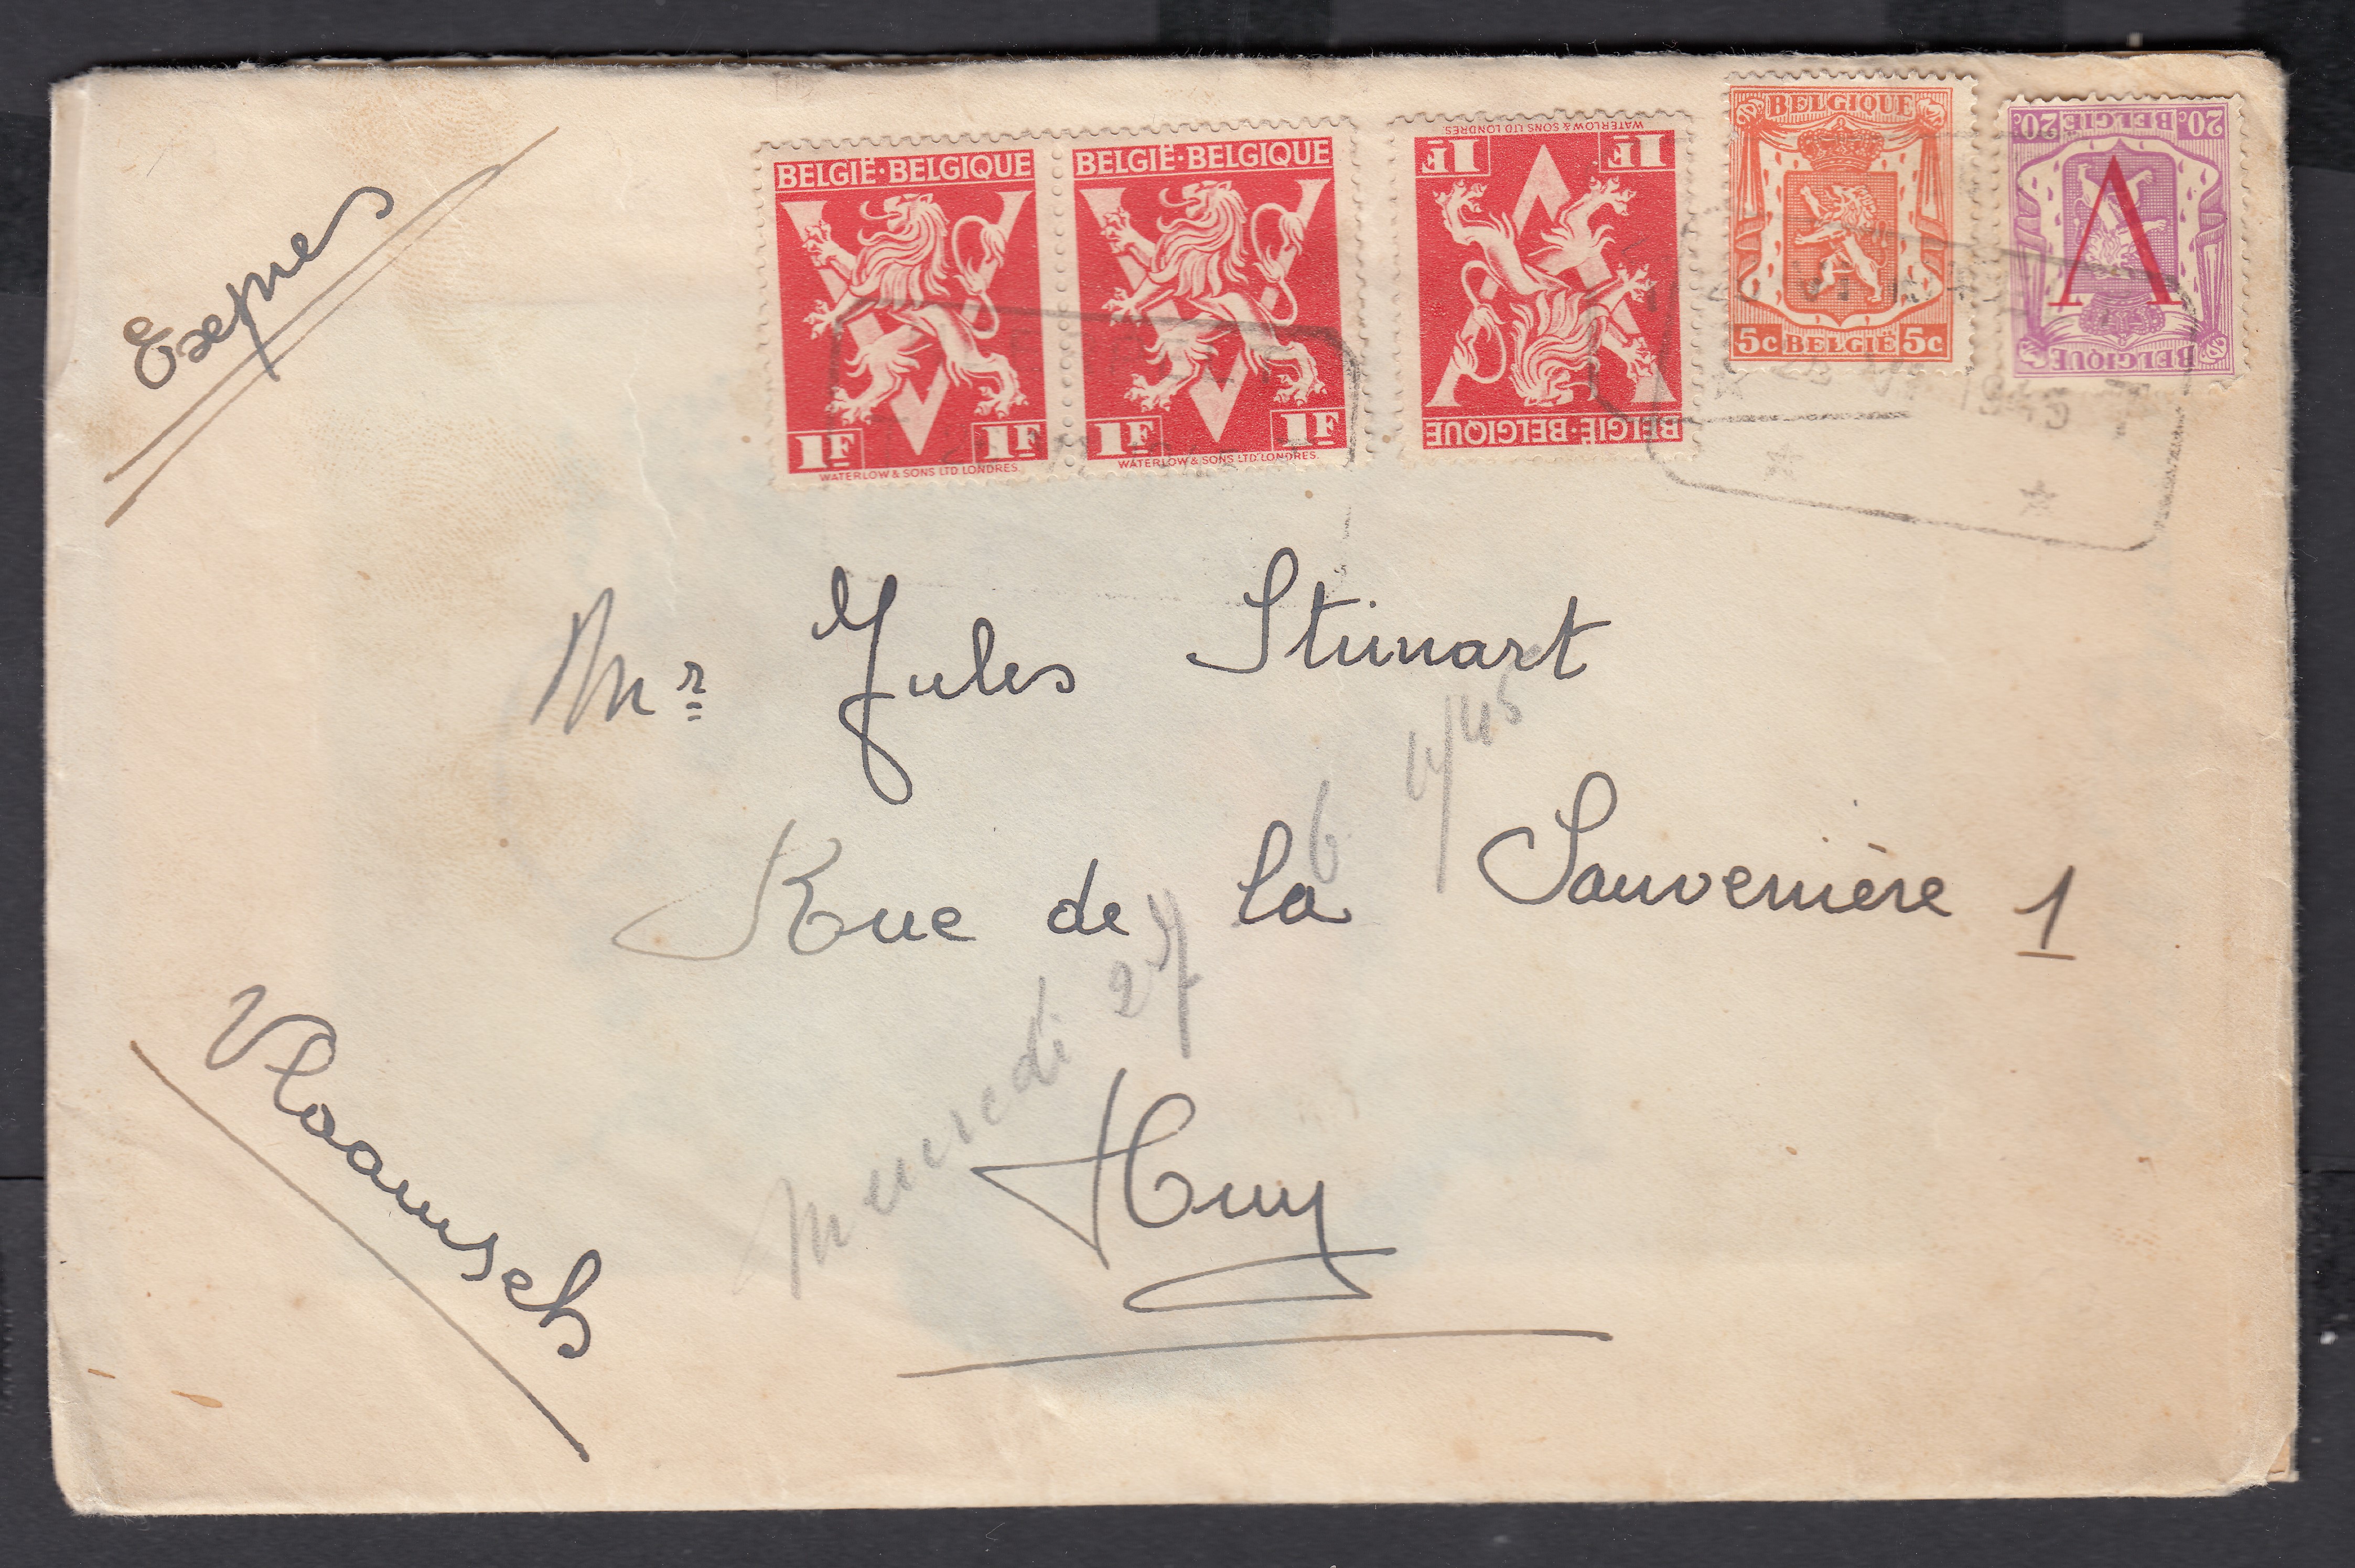 Expres
BELGIË·BELGIQUE
1F 1F
WATERLOW & SONS LTD LONDRES.
BELGIË·BELGIQUE
1F 1F
WATERLOW & SONS LTD LONDRES.
BELGIË·BELGIQUE
1F 1F
WATERLOW & SONS LTD LONDRES.
BELGIQUE
5c BELGIË 5c
BELGIQUE
V
20c BELGIË 20c
1945
Mr Jules Stiinart
Rue de la Sauvenière 1
Huy
Vlaamsch
Mercredi 27